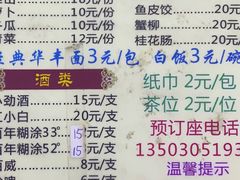 12元/份
18元/份
10元/份
12元/份
鱼皮饺
蟹柳
桂花肠
经典华丰面3元/包 白饭3元/碗
酒类
小劲酒 15元/支
红小白 20元/支
百年糊涂33° 15元/支
百年糊涂52° 15元/支
百威 8元/支
8元/支
纸巾 2元/包
茶位 2元/位
预订座电话
1350305193
温馨提示